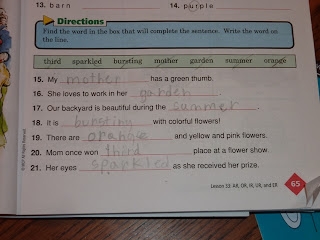 13. barn 14. purple
Directions
Find the word in the box that will complete the sentence. Write the word on
the line.
third sparkled bursting mother garden summer orange
15. My mother has a green thumb.
16. She loves to work in her garden.
17. Our backyard is beautiful during the summer.
18. It is bursting with colorful flowers!
19. There are orange and yellow and pink flowers.
20. Mom once won third place at a flower show.
21. Her eyes sparkled as she received her prize.
Lesson 33: AR, OR, IR, UR, and ER 65